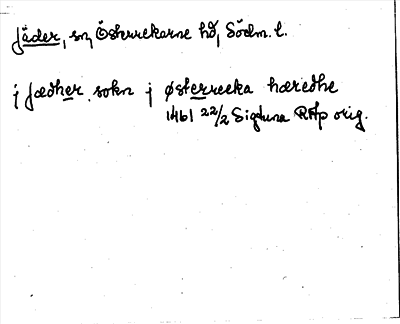 Jäder, sn, Österrekarne hd, Södm. l.
j Jædher sokn j østerrecka hæredhe
1461 22/2 Sigtuna RAp orig.